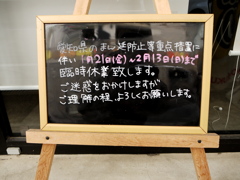 愛知県のまん延防止等重点措置に
伴い1月21日(金)~2月13日(日)まで
臨時休業致します。
ご迷惑をおかけしますが
ご理解の程、よろしくお願いします。